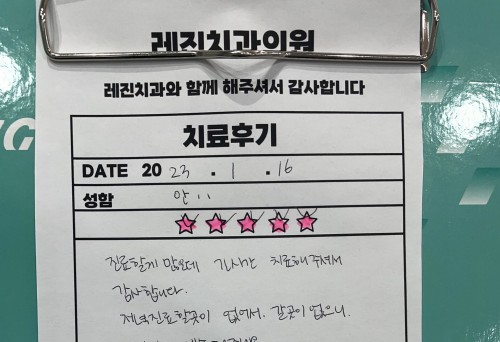 레진치과의원
레진치과와 함께 해주셔서 감사합니다
치료후기
DATE 20 23 . 1 . 16
성함 안 ıı
진료할게 많은데 긴시간 치료해주셔서
감사합니다.
저녁진료할곳이 없어서. 갈곳이 없으니.